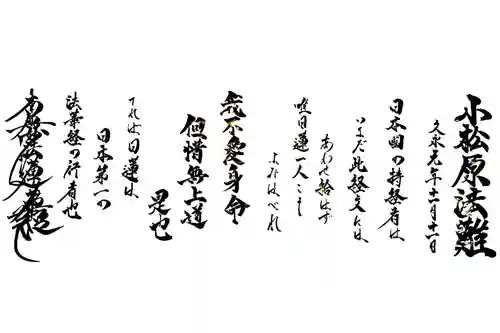 小松原法難
文永元年十一月十一日
日本國の持経者は
いまだ此経文には
あわせ給はず
唯日蓮一人こそ
よみはべれ
我不愛身命
但惜無上道
是也
されば日蓮は
日本第一の
法華経の行者也
南無妙法蓮華経